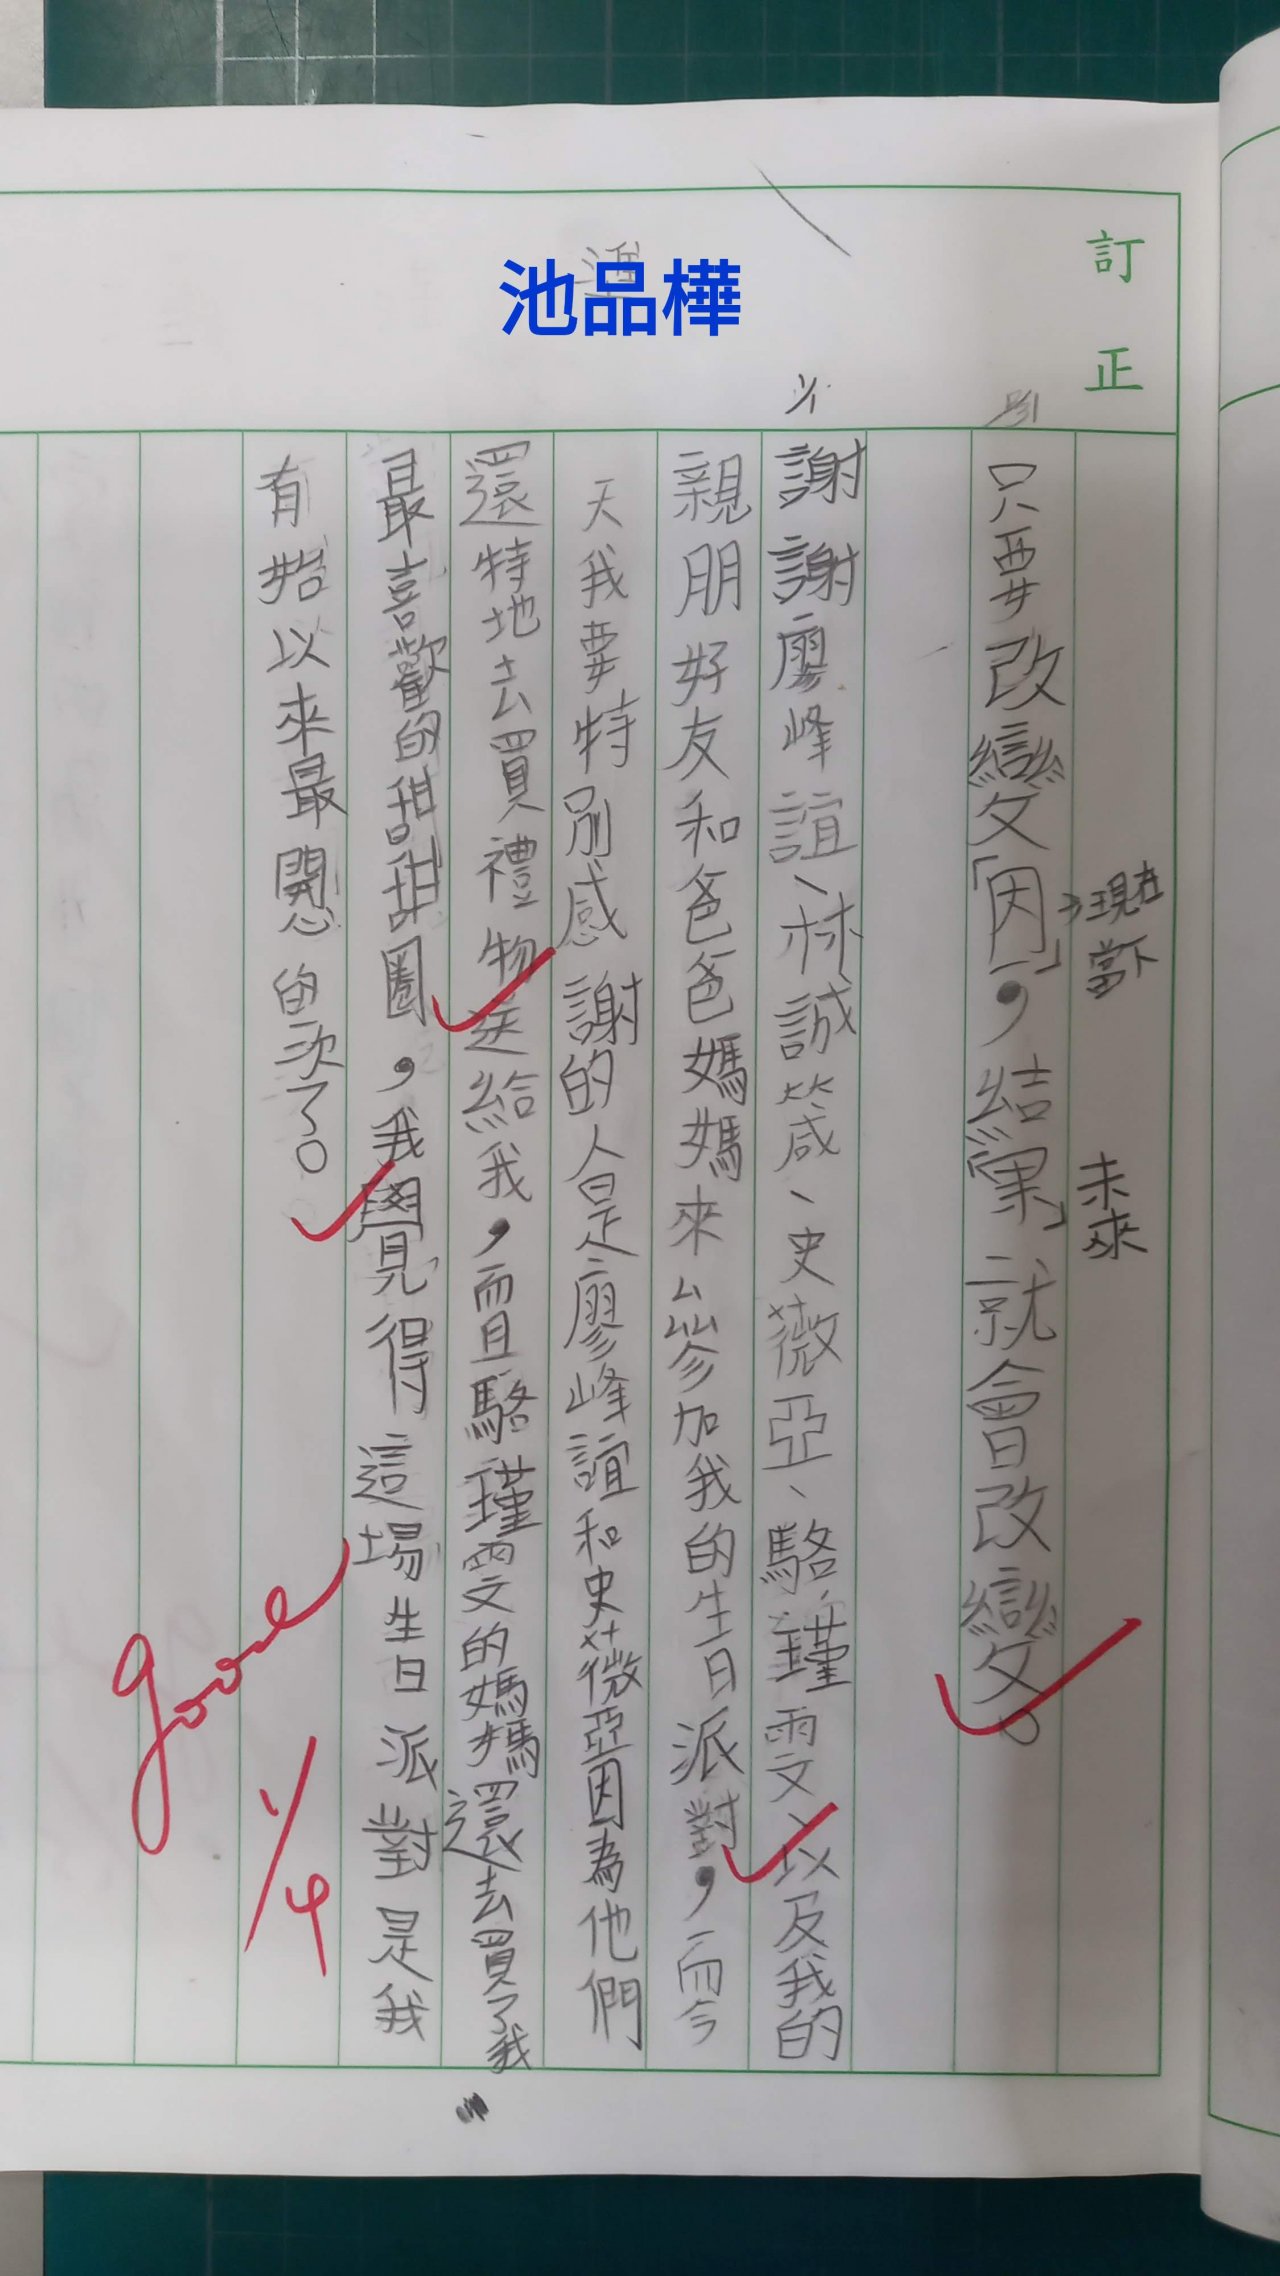 訂正
池品樺
12/31
只要改變「因」,「結果」就會改變。
→現在當下
未來
1/1
謝謝廖峰誼、林誠箴、史薇亞、駱瑾雯、以及我的
親朋好友和爸爸媽媽來參加我的生日派對,而今
天我要特別感謝的人是廖峰誼和史薇亞因為他們
還特地去買禮物送給我,而且駱瑾雯的媽媽還去買了我
最喜歡的甜甜圈,我覺得這場生日派對是我
有始以來最開心的一次了。
good
1/4